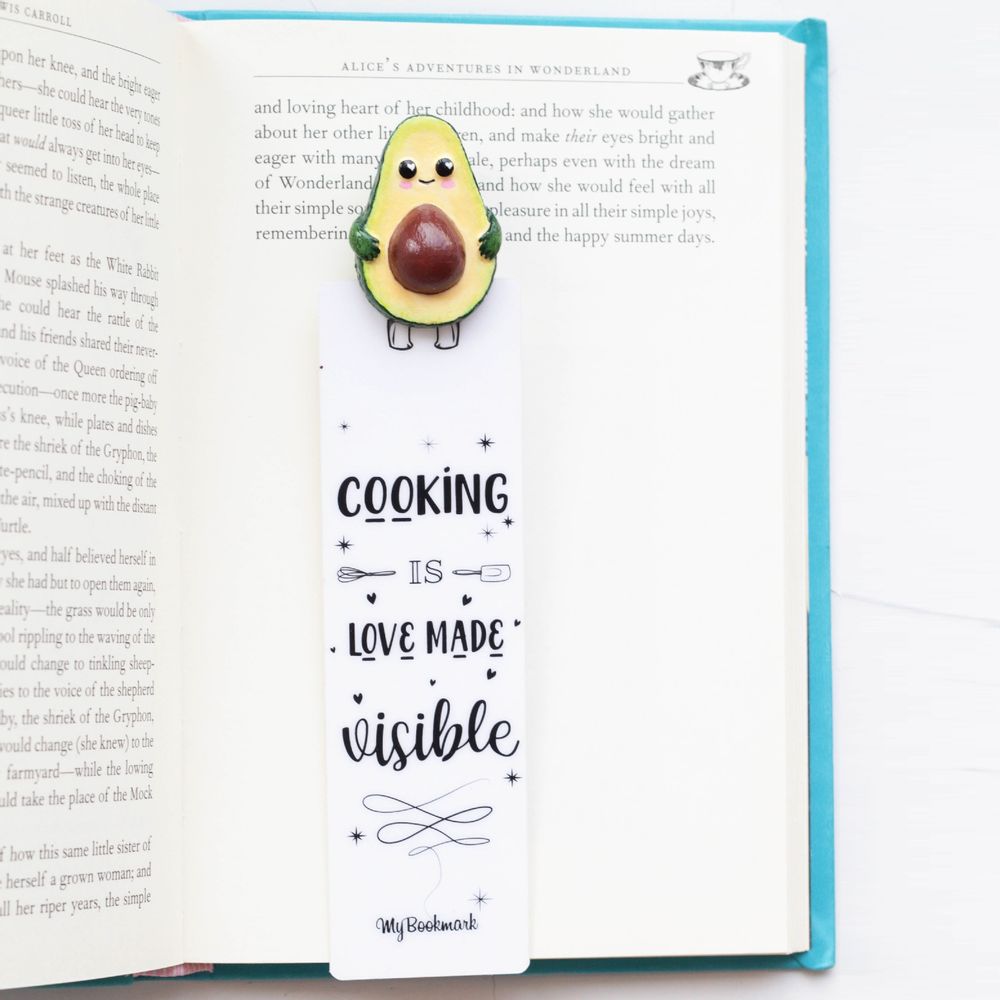 WIS CARROLL
pon her knee, and the bright eager
hers—she could hear the very tones
queer little toss of her head to keep
at would always get into her eyes—
seemed to listen, the whole place
th the strange creatures of her little
at her feet as the White Rabbit
Mouse splashed his way through
he could hear the rattle of the
nd his friends shared their never-
voice of the Queen ordering off
ecution—once more the pig-baby
s's knee, while plates and dishes
re the shriek of the Gryphon, the
te-pencil, and the choking of the
the air, mixed up with the distant
urtle.
yes, and half believed herself in
she had but to open them again,
eality—the grass would be only
ool rippling to the waving of the
ould change to tinkling sheep-
ies to the voice of the shepherd
by, the shriek of the Gryphon,
would change (she knew) to the
farmyard—while the lowing
uld take the place of the Mock
f how this same little sister of
herself a grown woman; and
all her riper years, the simple
ALICE'S ADVENTURES IN WONDERLAND
and loving heart of her childhood: and how she would gather
about her other lit en, and make their eyes bright and
eager with many ale, perhaps even with the dream
of Wonderland and how she would feel with all
their simple so pleasure in all their simple joys,
rememberin and the happy summer days.
COOKING
IS
LOVE MADE
visible
MyBookmark